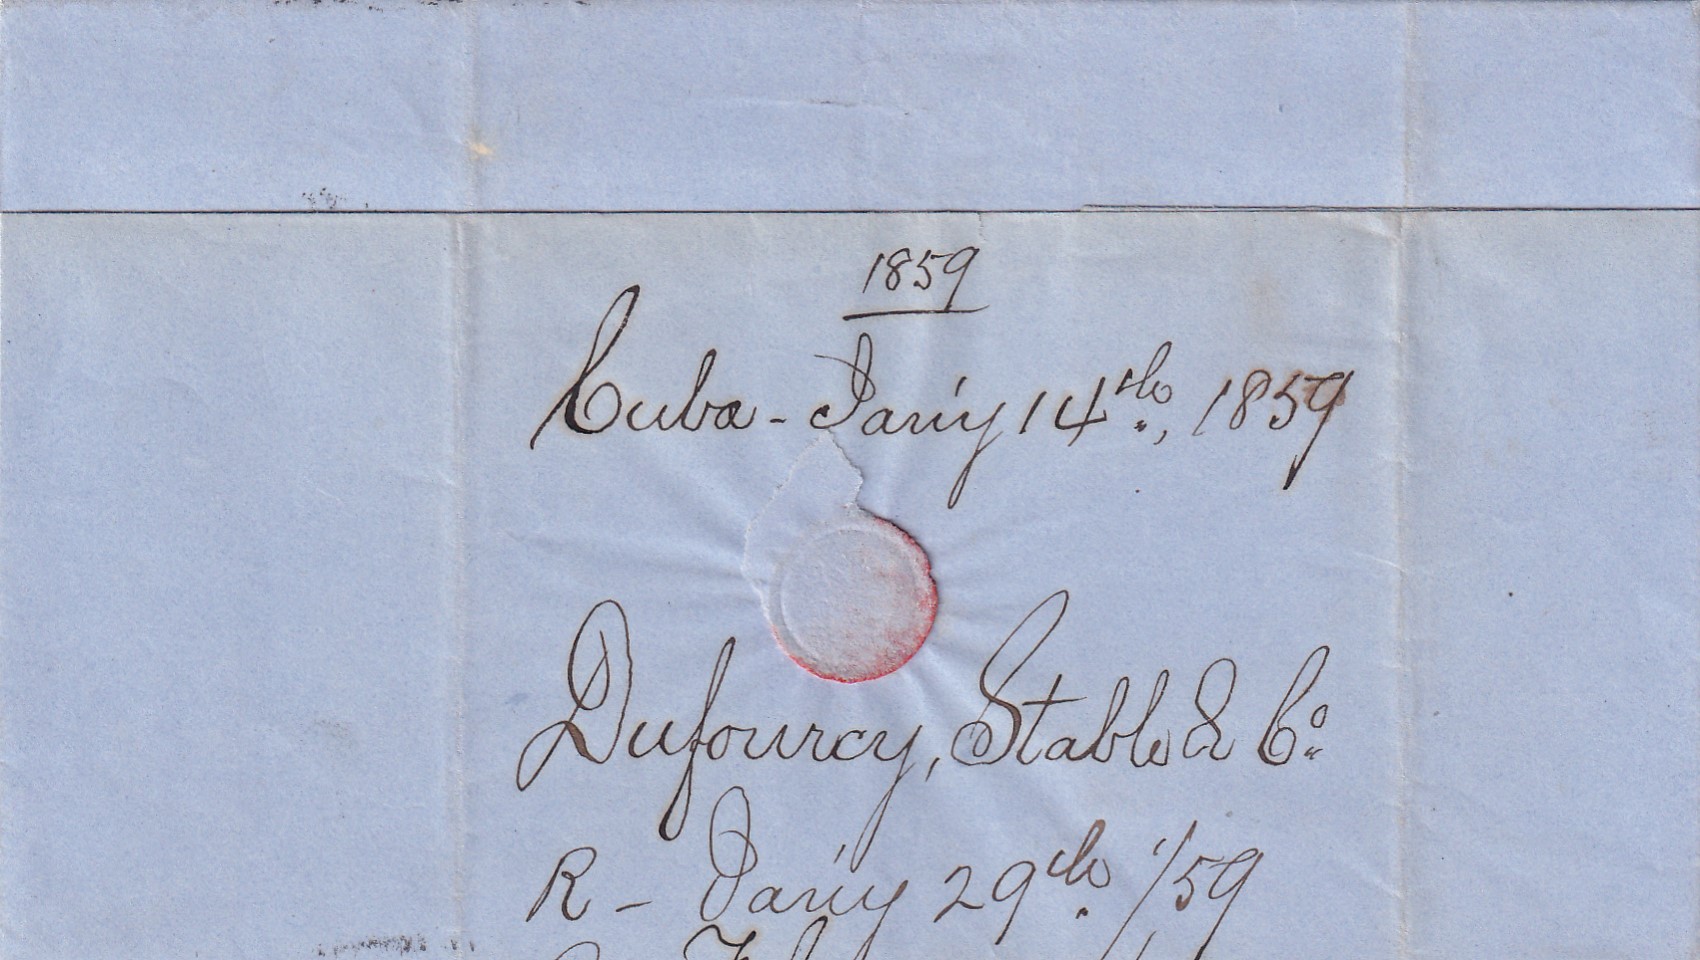 1859
Cuba - Jan'y 14th, 1859
Dufourcy, Stable & Co.
R - Jan'y 29th '/59